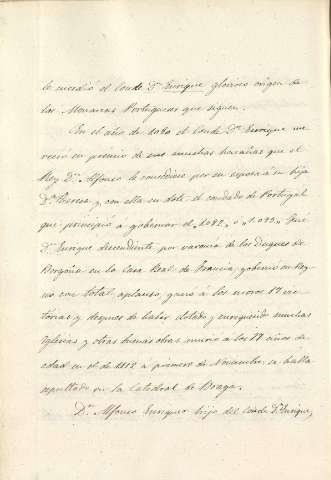 le sucedió el Conde Dn. Enrique glorioso origen de
los Monarcas Portugueses que siguen.
En el año de 1080 el Conde Dn. Enrique me
reció en premio de sus muchas hazañas que el
Rey Dn. Alfonso le concediese por su esposa a su hija
Da. Teresa y, con ella en dote el condado de Portugal
que principió a gobernar el "1082" o "1093" Fué
Dn. Enrique descendiente por varonia de los Duques de
Borgoña en la Casa Real de Francia, gobernó en Rey-
no con total aplauso, ganó á los moros 17 vic-
torias y despues de haber dotado y enriquecido muchas
Iglesias y otras buenas obras murio a los 77 años de
edad en el de 1112 a primero de Noviembre, se halla
sepultado en la Catedral de Braga.
Dn. Alfonso Enriquez hijo del Conde Dn. Enrique,